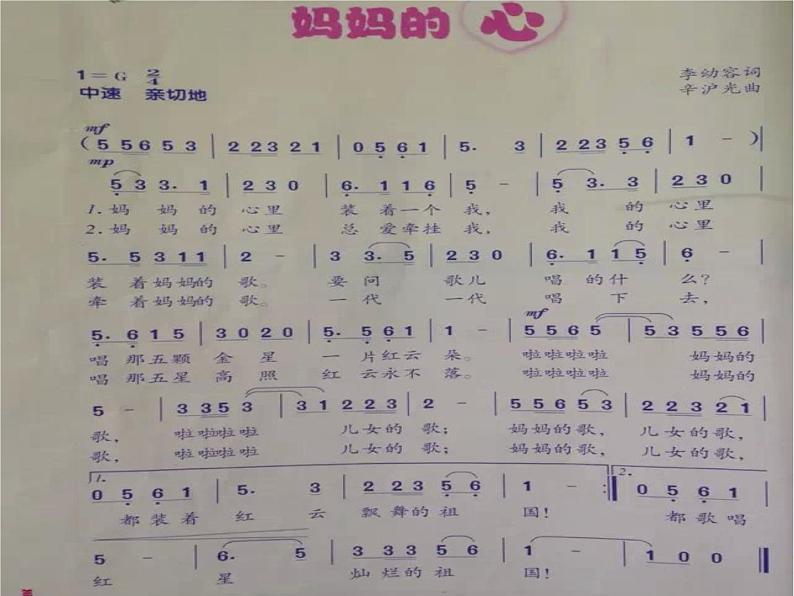 妈妈的心
1=G 2/4
李幼容词
中速 亲切地
辛沪光曲
mf
(5 5 6 5 3 | 2 2 3 2 1 | 0 5 6 1 | 5. 3 | 2 2 3 5 6 | 1 - )|
mp
5 3 3. 1 | 2 3 0 | 6. 1 1 6 | 5 - | 5 3. 3 | 2 3 0 |
1.妈 妈 的 心里 装 着一个 我, 我 的 心里
2.妈 妈 的 心里 总 爱牵挂 我, 我 的 心里
5. 5 3 1 1 | 2 - | 3 3 3. 5 | 2 3 0 | 6. 1 1 5 | 6 - |
装 着妈妈的 歌。 要问 歌儿 唱的什 么?
牵 着妈妈的 歌。 一代 一代 唱 下 去,
mf
5. 6 1 5 | 3 0 2 0 | 5. 5 6 1 | 1 - | 5 5 6 5 | 5 3 5 5 6 |
唱 那五颗 金 星 一 片红云 朵。 啦啦啦啦 妈妈的
唱 那五星 高 照 红 云永不 落。 啦啦啦啦 妈妈的
5 - | 3 3 5 3 | 3 1 2 2 3 | 2 - | 5 5 6 5 3 | 2 2 3 2 1 |
歌, 啦啦啦啦 儿女的 歌; 妈妈的 歌, 儿女的 歌,
歌, 啦啦啦啦 儿女的 歌; 妈妈的 歌, 儿女的 歌,
1. 2.
0 5 6 1 | 5. 3 | 2 2 3 5 6 | 1 - :| 0 5 6 1 |
都装着 红 云 飘舞的 祖 国! 都歌唱
5 - | 6. 5 | 3 3 3 5 6 | 1 - | 1 0 0 |
红 星 灿烂的 祖 国!